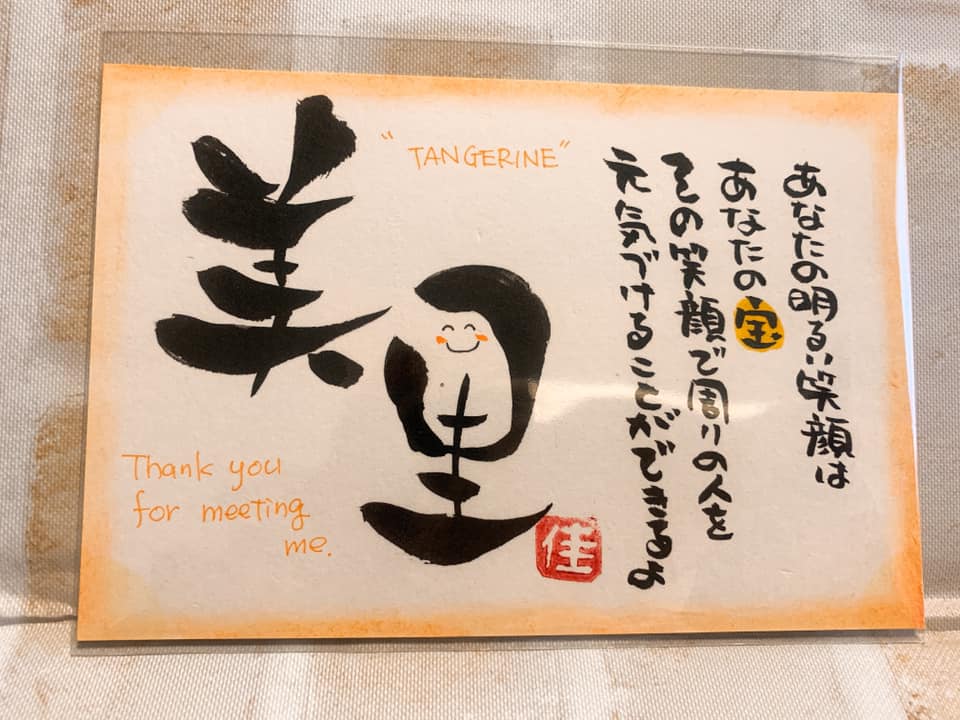 美里
"TANGERINE"
あなたの明るい笑顔は
あなたの宝
その笑顔で周りの人を
元気づけることができるよ
Thank you
for meeting
me.
佳